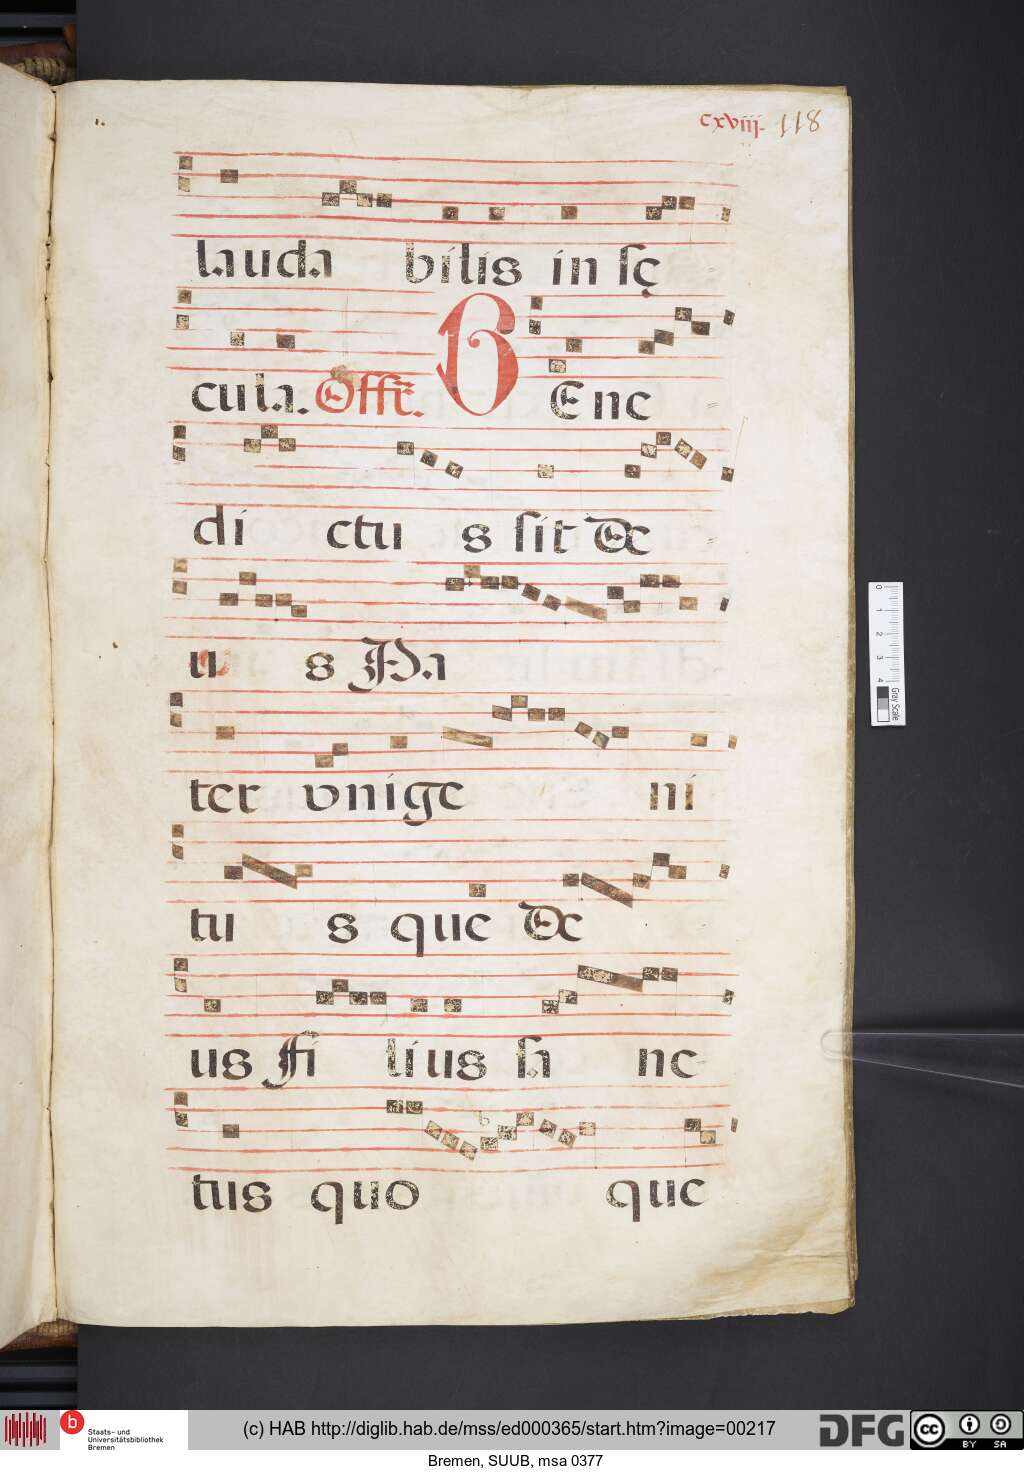 cxviij. 118
lauda bilis in sę
cula. Offr̃. B Ene
di ctu s sit de
u s Pa
ter vnige ni
tu s que de
us fi lius sa nc
tus quo que
0 1 2 3 4
Gray Scale
b Staats- und Universitätsbibliothek Bremen
(c) HAB http://diglib.hab.de/mss/ed000365/start.htm?image=00217
DFG cc BY SA
Bremen, SUUB, msa 0377